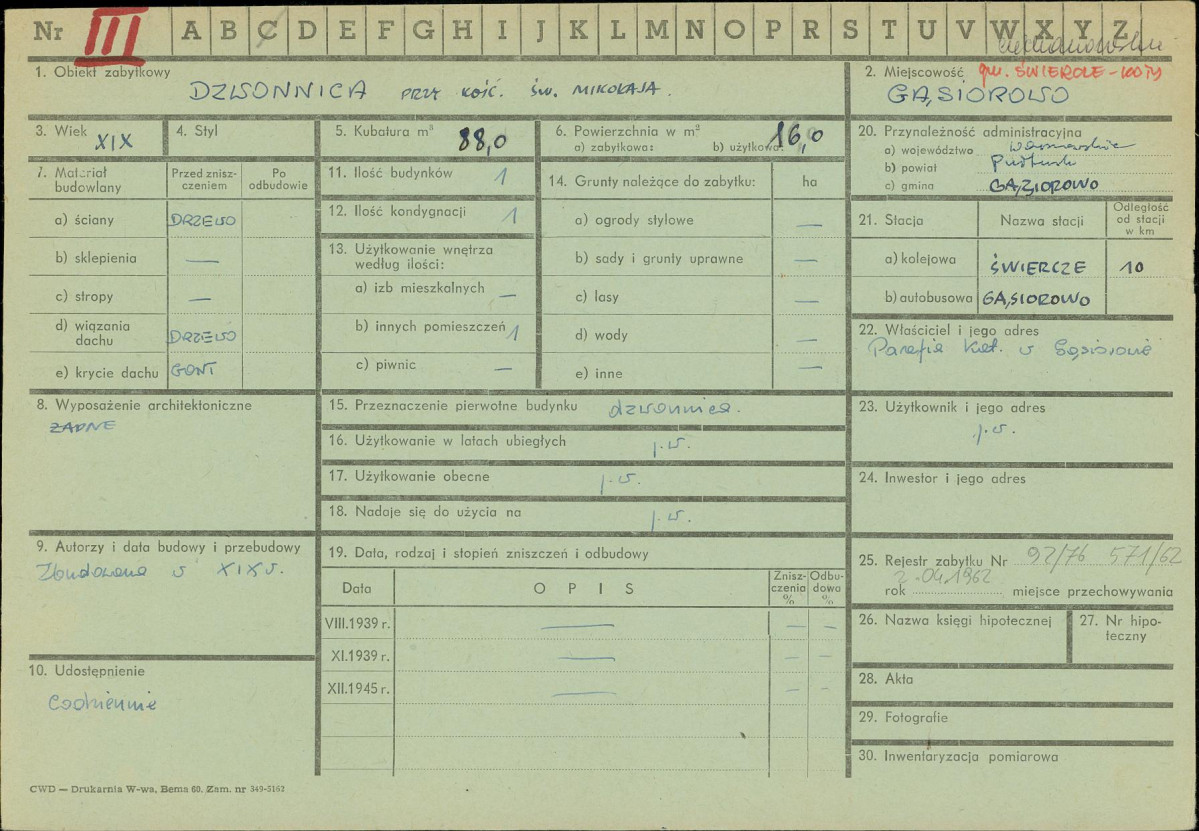 Nr III A B C D E F G H I J K L M N O P R S T U V W X Y Z
ciechanowskie
1. Obiekt zabytkowy
DZWONNICA PRZY KOŚĆ. ŚW. MIKOŁAJA.
2. Miejscowość gm. ŚWIERCZE-KOTY
GĄSIOROWO
3. Wiek XIX
4. Styl
5. Kubatura m³ 88,0
6. Powierzchnia w m² 16,0
a) zabytkowa: b) użytkowa:
7. Materiał budowlany
Przed zniszczeniem
Po odbudowie
a) ściany DRZEWO
b) sklepienia —
c) stropy —
d) wiązania dachu DRZEWO
e) krycie dachu GONT
8. Wyposażenie architektoniczne
ŻADNE
9. Autorzy i data budowy i przebudowy
Zbudowana w XIX w.
10. Udostępnienie
codziennie
11. Ilość budynków 1
12. Ilość kondygnacji 1
13. Użytkowanie wnętrza
według ilości:
a) izb mieszkalnych —
b) innych pomieszczeń 1
c) piwnic —
14. Grunty należące do zabytku: ha
a) ogrody stylowe —
b) sady i grunty uprawne —
c) lasy —
d) wody —
e) inne —
15. Przeznaczenie pierwotne budynku dzwonnica.
16. Użytkowanie w latach ubiegłych j.w.
17. Użytkowanie obecne j.w.
18. Nadaje się do użycia na j.w.
19. Data, rodzaj i stopień zniszczeń i odbudowy
Data OPIS Zniszczenia % Odbudowa %
VIII.1939 r. — — —
XI.1939 r. — — —
XII.1945 r. — — —
20. Przynależność administracyjna
a) województwo Warszawskie
b) powiat Pułtusk
c) gmina GĄSIOROWO
21. Stacja Nazwa stacji Odległość od stacji w km
a) kolejowa ŚWIERCZE 10
b) autobusowa GĄSIOROWO
22. Właściciel i jego adres
Parafia Kat. w Gąsiorowie
23. Użytkownik i jego adres
j.w.
24. Inwestor i jego adres
25. Rejestr zabytku Nr 92/76 571/62
2.04.1962
rok miejsce przechowywania
26. Nazwa księgi hipotecznej
27. Nr hipoteczny
28. Akta
29. Fotografie
30. Inwentaryzacja pomiarowa
CWD — Drukarnia W-wa, Bema 60. Zam. nr 349-5162